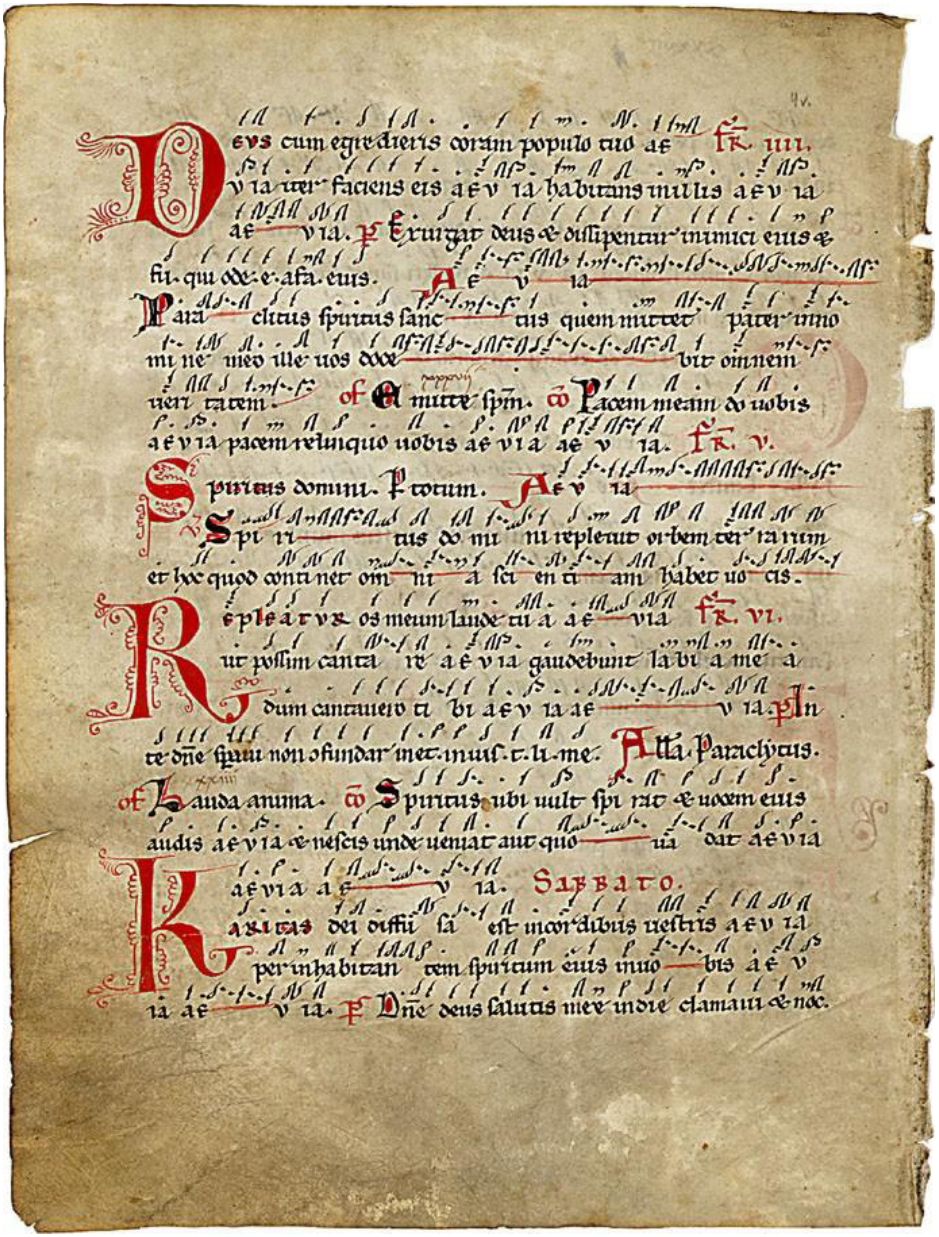 4v.
Deus cum egredieris coram populo tuo ae fr. iiii.
v ia iter faciens eis aev ia habitans in illis aev ia
ae v ia. p Exurgat deus & dissipentur inimici eius &
fu. qui ode. e. afa. eius. Ae v ia
Para clitus spiritus sanc tus quem mittet pater in no
mi ne meo ille vos doce bit omnem
veri tatem. of Emitte spm. co Pacem meam do vobis
aevia pacem relinquo vobis aevia ae v ia. fr. v.
Spiritus domini. P totum. Ae v ia
v Spi ri tus do mi ni replevit orbem ter ra rum
et hoc quod conti net om ni a sci en ti am habet vo cis.
Repleatur os meum laude tu a ae via fr. vi.
ut possim canta re aevia gaudebunt labi a me a
dum cantavero ti bi aev ia ae v ia. p In
te dne spavi non ɔfundar inet. in iuis. t. li. me. All'a. Paraclytus.
xxiiii
of Lauda anima. co Spiritus ubi vult spi rat & vocem eius
audis aevia & nescis unde veniat aut quo va dat aevia
aevia ae v ia. Sabbato.
Karitas dei diffu sa est in cordibus vestris aev ia
per inhabitan tem spiritum eius in vo bis ae v
ia ae v ia. p Dne deus salutis mee in die clamavi & noc.